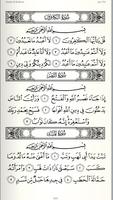 سُورَةُ الكَافِرُونَ
بِسْمِ اللَّهِ الرَّحْمَٰنِ الرَّحِيمِ
قُلْ يَٰٓأَيُّهَا ٱلْكَٰفِرُونَ ١ لَآ أَعْبُدُ مَا تَعْبُدُونَ ٢
وَلَآ أَنتُمْ عَٰبِدُونَ مَآ أَعْبُدُ ٣ وَلَآ أَنَا۠ عَابِدٌ مَّا عَبَدتُّمْ ٤
وَلَآ أَنتُمْ عَٰبِدُونَ مَآ أَعْبُدُ ٥ لَكُمْ دِينُكُمْ وَلِىَ دِينِ ٦
سُورَةُ النَّصْرِ
بِسْمِ اللَّهِ الرَّحْمَٰنِ الرَّحِيمِ
إِذَا جَآءَ نَصْرُ ٱللَّهِ وَٱلْفَتْحُ ١ وَرَأَيْتَ ٱلنَّاسَ
يَدْخُلُونَ فِى دِينِ ٱللَّهِ أَفْوَاجًا ٢ فَسَبِّحْ بِحَمْدِ رَبِّكَ
وَٱسْتَغْفِرْهُ إِنَّهُۥ كَانَ تَوَّابًۢا ٣
سُورَةُ المَسَدِ
بِسْمِ اللَّهِ الرَّحْمَٰنِ الرَّحِيمِ
تَبَّتْ يَدَآ أَبِى لَهَبٍ وَتَبَّ ١ مَآ أَغْنَىٰ عَنْهُ مَالُهُۥ وَمَا
كَسَبَ ٢ سَيَصْلَىٰ نَارًا ذَاتَ لَهَبٍ ٣ وَٱمْرَأَتُهُۥ
حَمَّالَةَ ٱلْحَطَبِ ٤ فِى جِيدِهَا حَبْلٌ مِّن مَّسَدٍۭ ٥